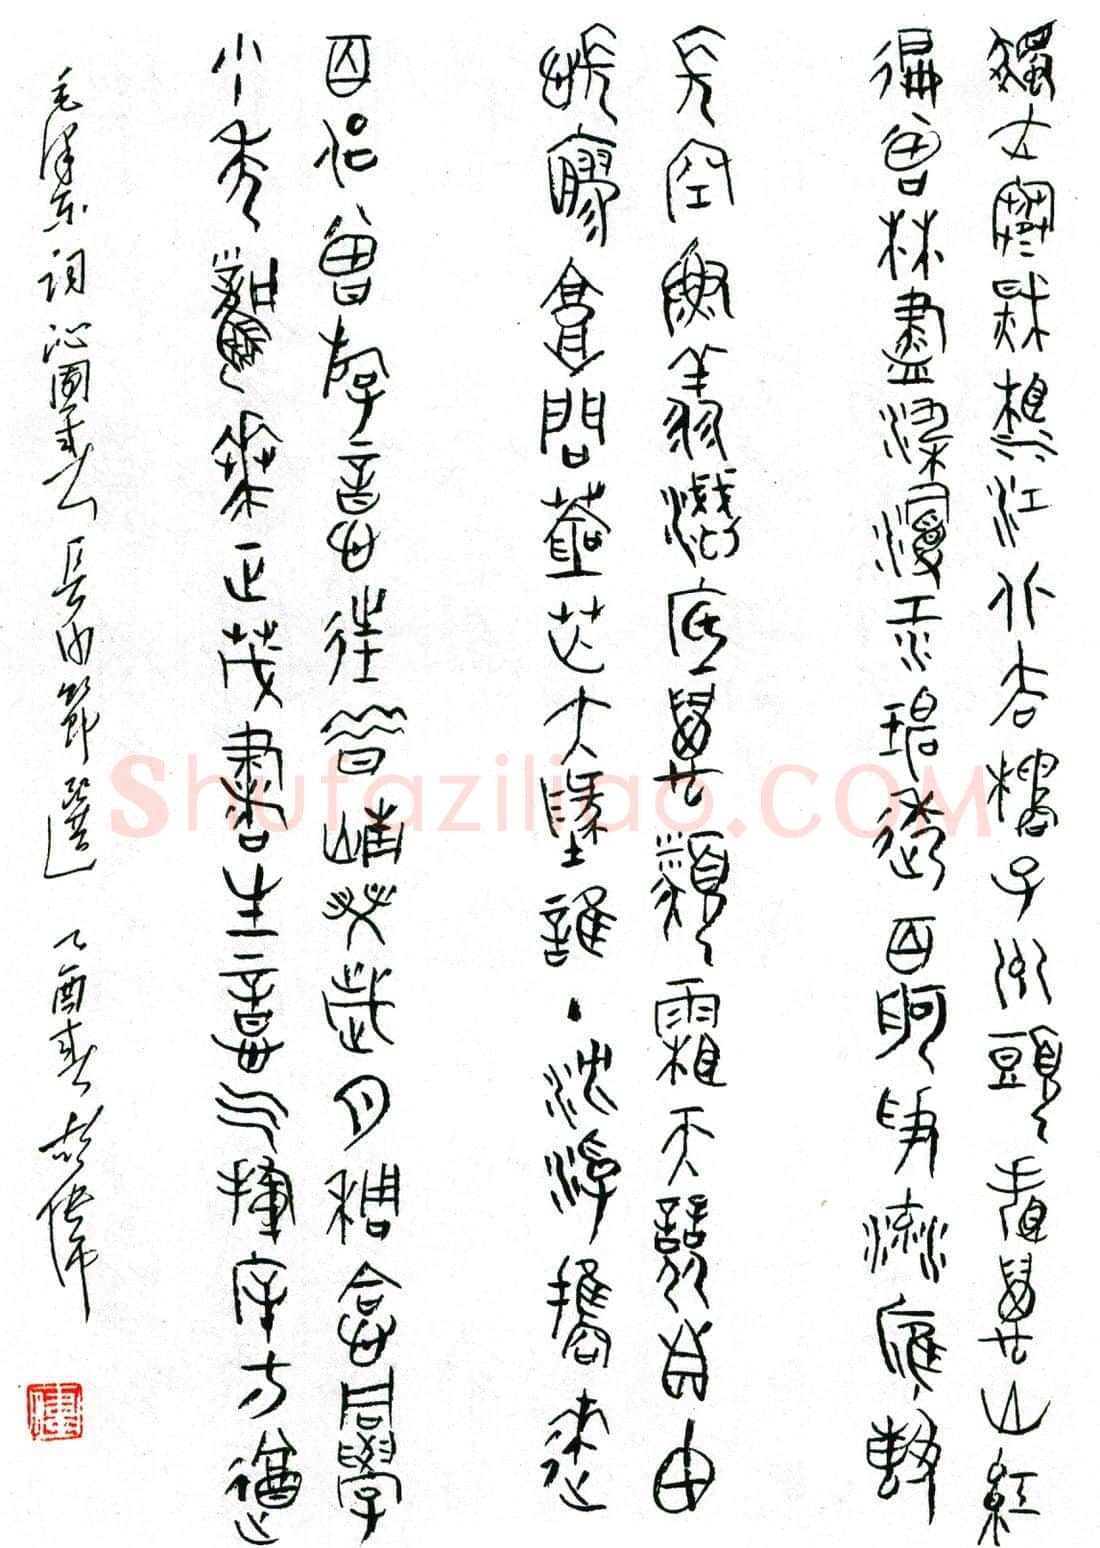 獨立寒秋湘江北去橘子洲頭看萬山紅
遍層林盡染漫江碧透百舸爭流鷹擊
長空魚翔淺底萬類霜天競自由
悵寥廓問蒼茫大地誰主沉浮攜來
百侶曾游憶往昔崢嶸歲月稠恰同學
少年風華正茂書生意氣揮斥方遒
毛澤東詞沁園春長沙節選 乙酉春
Shufaziliao.COM